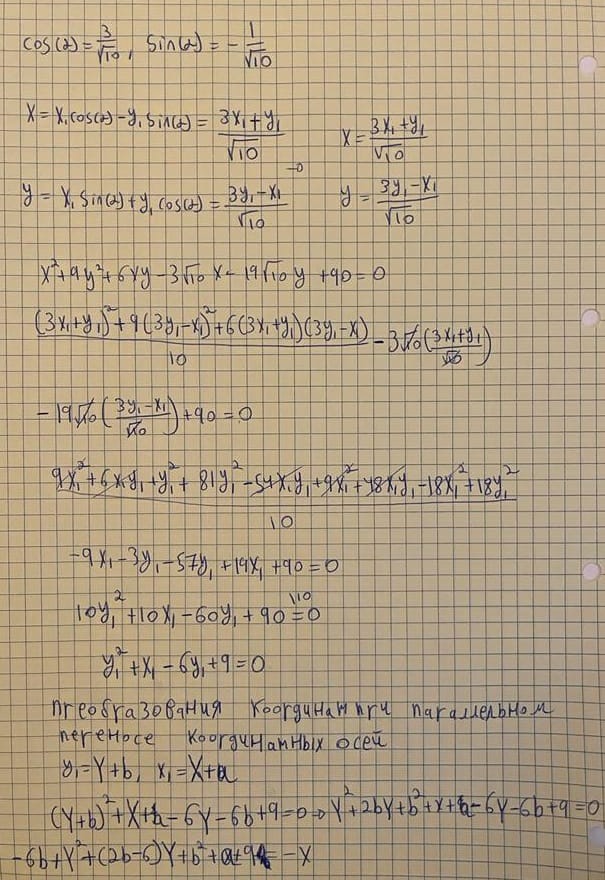 cos(α) = 3/√10, sin(α) = - 1/√10
x = x₁cos(α) - y₁sin(α) = (3x₁+y₁)/√10 x = (3x₁+y₁)/√10
y = x₁sin(α) + y₁cos(α) = (3y₁-x₁)/√10 y = (3y₁-x₁)/√10
x² + 9y² + 6xy - 3√10 x - 19√10 y + 90 = 0
((3x₁+y₁)² + 9(3y₁-x₁)² + 6(3x₁+y₁)(3y₁-x₁))/10 - 3√10((3x₁+y₁)/√10)
- 19√10((3y₁-x₁)/√10) + 90 = 0
(9x₁² + 6x₁y₁ + y₁² + 81y₁² - 54x₁y₁ + 9x₁² + 48x₁y₁ - 18x₁² + 18y₁²)/10
-9x₁ - 3y₁ - 57y₁ + 19x₁ + 90 = 0
10y₁² + 10x₁ - 60y₁ + 90 = 0 |10
y₁² + x₁ - 6y₁ + 9 = 0
преобразования координат при параллельном
переносе координатных осей
y₁ = Y+b, x₁ = X+a
(Y+b)² + X+a - 6Y - 6b + 9 = 0 → Y² + 2bY + b² + X + a - 6Y - 6b + 9 = 0
-6b + Y² + (2b-6)Y + b² + a + 9 = -X